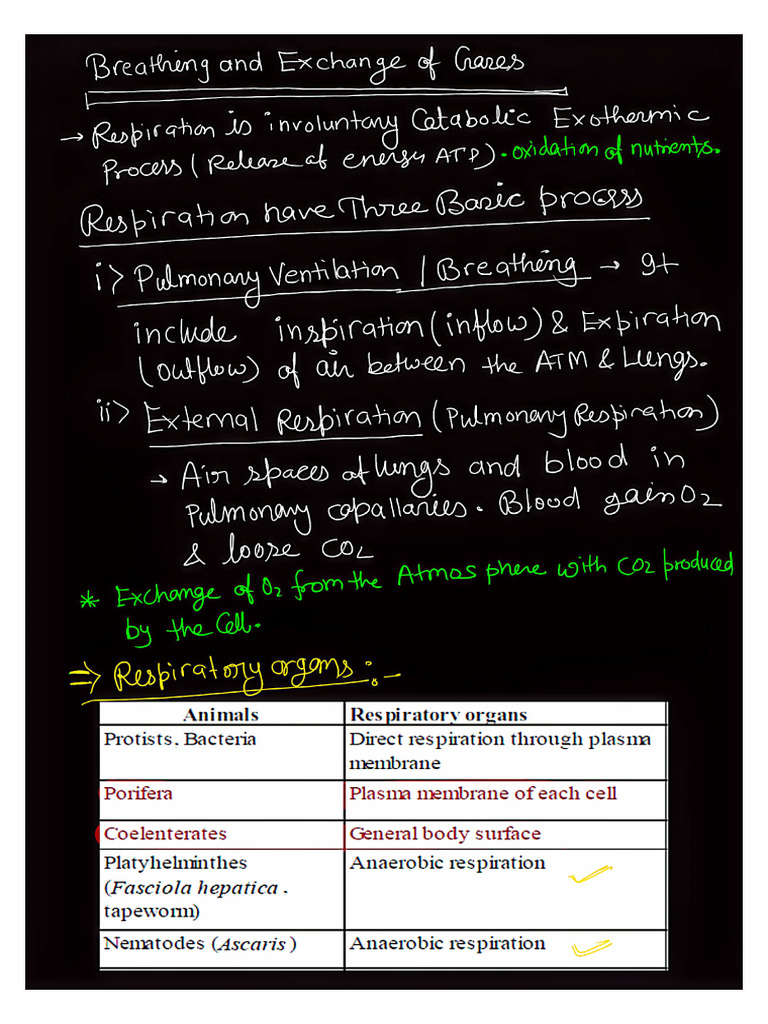 Breathing and Exchange of Gases
→ Respiration is involuntary Catabolic Exothermic
Process (Release of energy ATP). oxidation of nutrients.
Respiration have Three Basic process
i> Pulmonary Ventilation / Breathing → It
include inspiration (inflow) & Expiration
(outflow) of air between the ATM & Lungs.
ii> External Respiration (Pulmonary Respiration)
→ Air spaces of lungs and blood in
Pulmonary capallaries. Blood gain O2
& loose CO2
* Exchange of O2 from the Atmosphere with CO2 produced
by the Cell.
⇒ Respiratory organs :-
Animals Respiratory organs
Protists, Bacteria Direct respiration through plasma
membrane
Porifera Plasma membrane of each cell
Coelenterates General body surface
Platyhelminthes Anaerobic respiration
(Fasciola hepatica ,
tapeworm)
Nematodes (Ascaris ) Anaerobic respiration